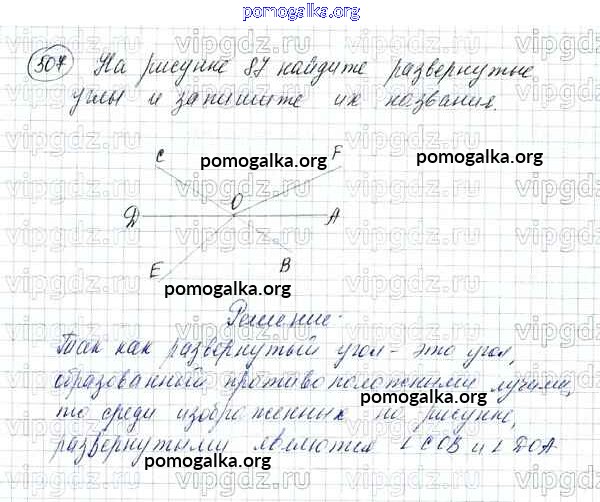 pomogalka.org
507 На рисунке 87 найдите развернутые
углы и запишите их названия.
C F
pomogalka.org pomogalka.org
O
D A
E B
pomogalka.org
Решение.
Так как развернутый угол - это угол,
образованный противоположными лучами,
то среди изображенных на рисунке,
развернутыми являются ∠COB и ∠DOA
pomogalka.org
vipgdz.ru